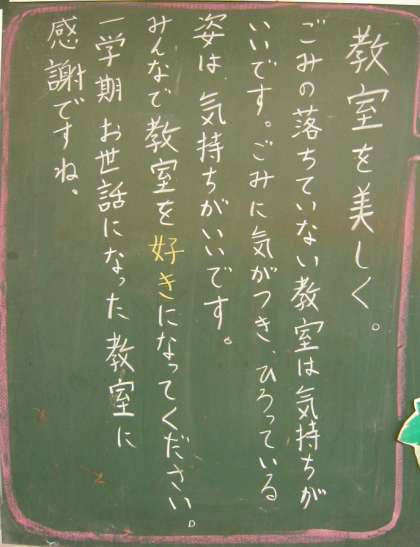 教室を美しく。
ごみの落ちていない教室は気持ちが
いいです。ごみに気がつき、ひろっている
姿は、気持ちがいいです。
みんなで教室を好きになってください。
一学期お世話になった教室に
感謝ですね、